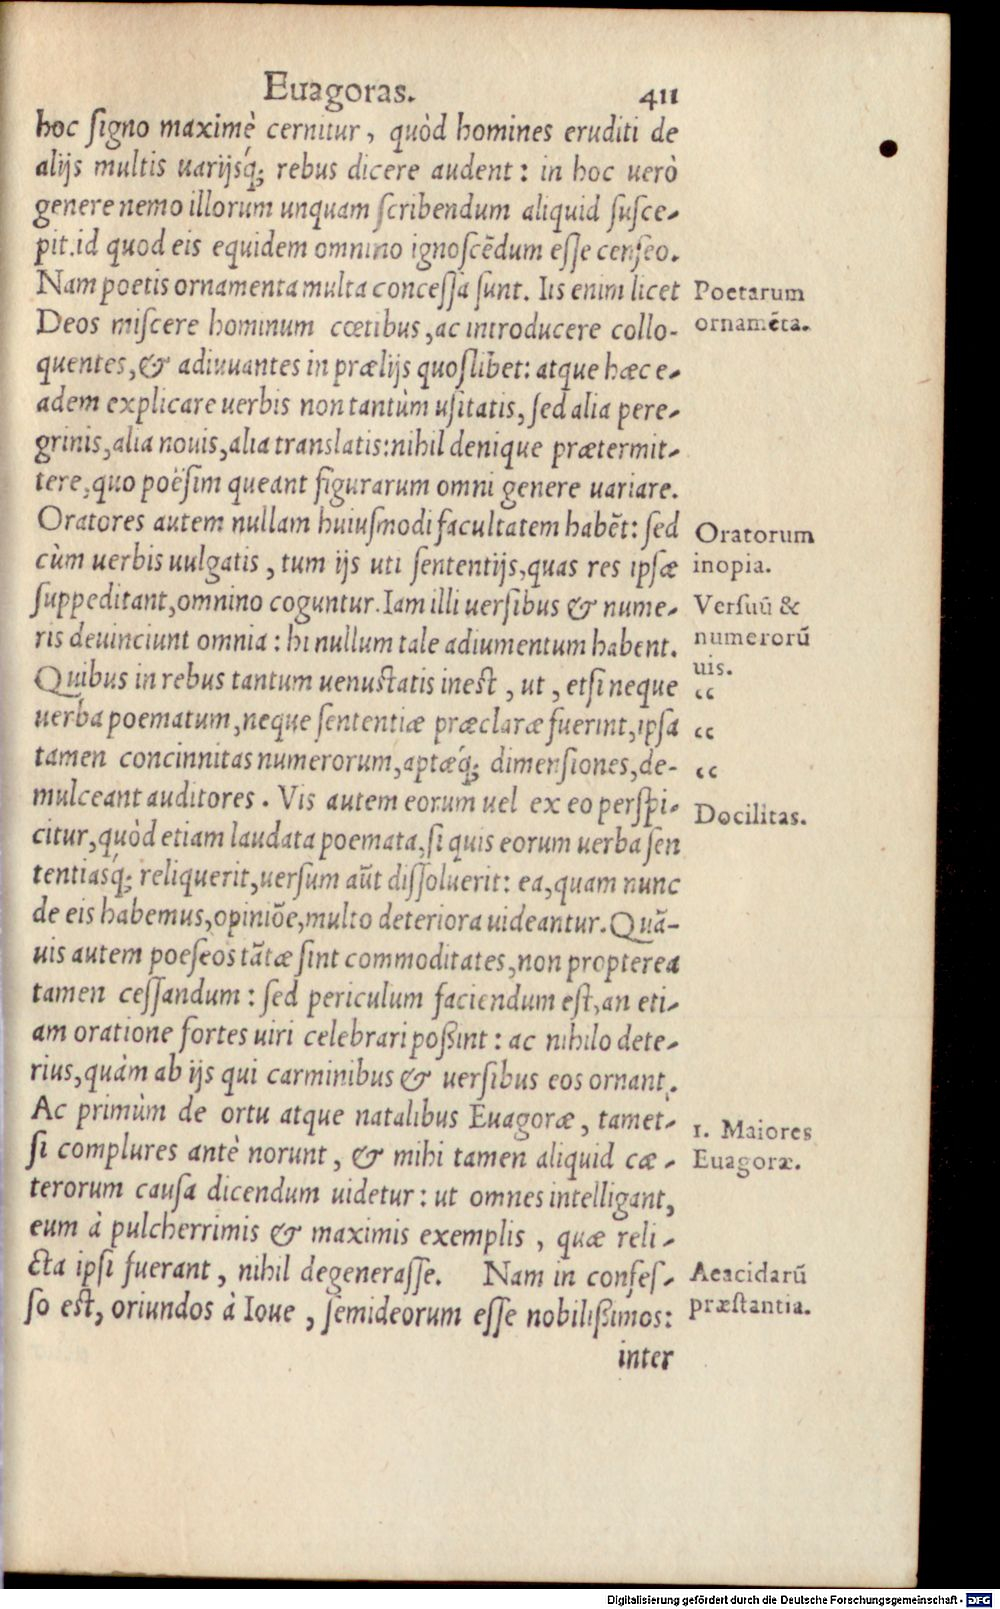 Euagoras. 411
hoc signo maximè cernitur, quòd homines eruditi de
alijs multis uarijsq́; rebus dicere audent: in hoc uerò
genere nemo illorum unquam scribendum aliquid susce-
pit.id quod eis equidem omnino ignoscēdum esse censeo.
Nam poetis ornamenta multa concessa sunt. Iis enim licet
Poetarum
Deos miscere hominum cœtibus, ac introducere collo-
ornamēta.
quentes, & adiuuantes in prælijs quoslibet: atque hæc e-
adem explicare uerbis non tantùm usitatis, sed alia pere-
grinis, alia nouis, alia translatis: nihil denique prætermit-
tere, quo poësim queant figurarum omni genere uariare.
Oratores autem nullam huiusmodi facultatem habēt: sed
Oratorum
cùm uerbis uulgatis, tum ijs uti sententijs, quas res ipsæ
inopia.
suppeditant, omnino coguntur. Iam illi uersibus & nume-
Versuū &
ris deuinciunt omnia: hi nullum tale adiumentum habent.
numerorū
uis.
Quibus in rebus tantum uenustatis inest, ut, etsi neque
“
uerba poematum, neque sententiæ præclaræ fuerint, ipsa
“
tamen concinnitas numerorum, aptæq́; dimensiones, de-
“
mulceant auditores. Vis autem eorum uel ex eo perspi-
Docilitas.
citur, quòd etiam laudata poemata, si quis eorum uerba sen
tentiasq́; reliquerit, uersum aūt dissoluerit: ea, quam nunc
de eis habemus, opiniōe, multo deteriora uideantur. Quā-
uis autem poeseos tātæ sint commoditates, non propterea
tamen cessandum: sed periculum faciendum est, an eti-
am oratione fortes uiri celebrari poßint: ac nihilo dete-
rius, quàm ab ijs qui carminibus & uersibus eos ornant.
Ac primùm de ortu atque natalibus Euagoræ, tamet-
1. Maiores
si complures antè norunt, & mihi tamen aliquid cæ-
Euagoræ.
terorum causa dicendum uidetur: ut omnes intelligant,
eum à pulcherrimis & maximis exemplis, quæ reli-
cta ipsi fuerant, nihil degenerasse. Nam in confes-
Aeacidarū
so est, oriundos à Ioue, semideorum esse nobilißimos:
præstantia.
inter
Digitalisierung gefördert durch die Deutsche Forschungsgemeinschaft - DFG